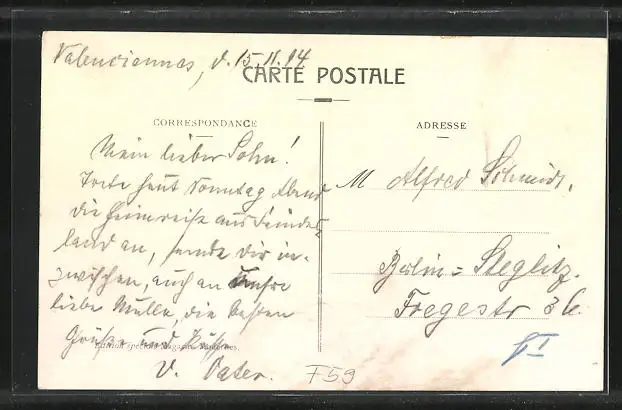 Valenciennes, d. 15.11.14.
CARTE POSTALE
CORRESPONDANCE
ADRESSE
Mein lieber Sohn!
Trete heut Sonntag Abend
die Heimreise aus Feindes-
land an, sende dir in-
zwischen, auch an unsre
liebe Mutter, die besten
Grüße und Küsse
V. Vater.
Edition spéciale
M Alfred Schmidt.
Berlin = Steglitz.
Fregestr
F59